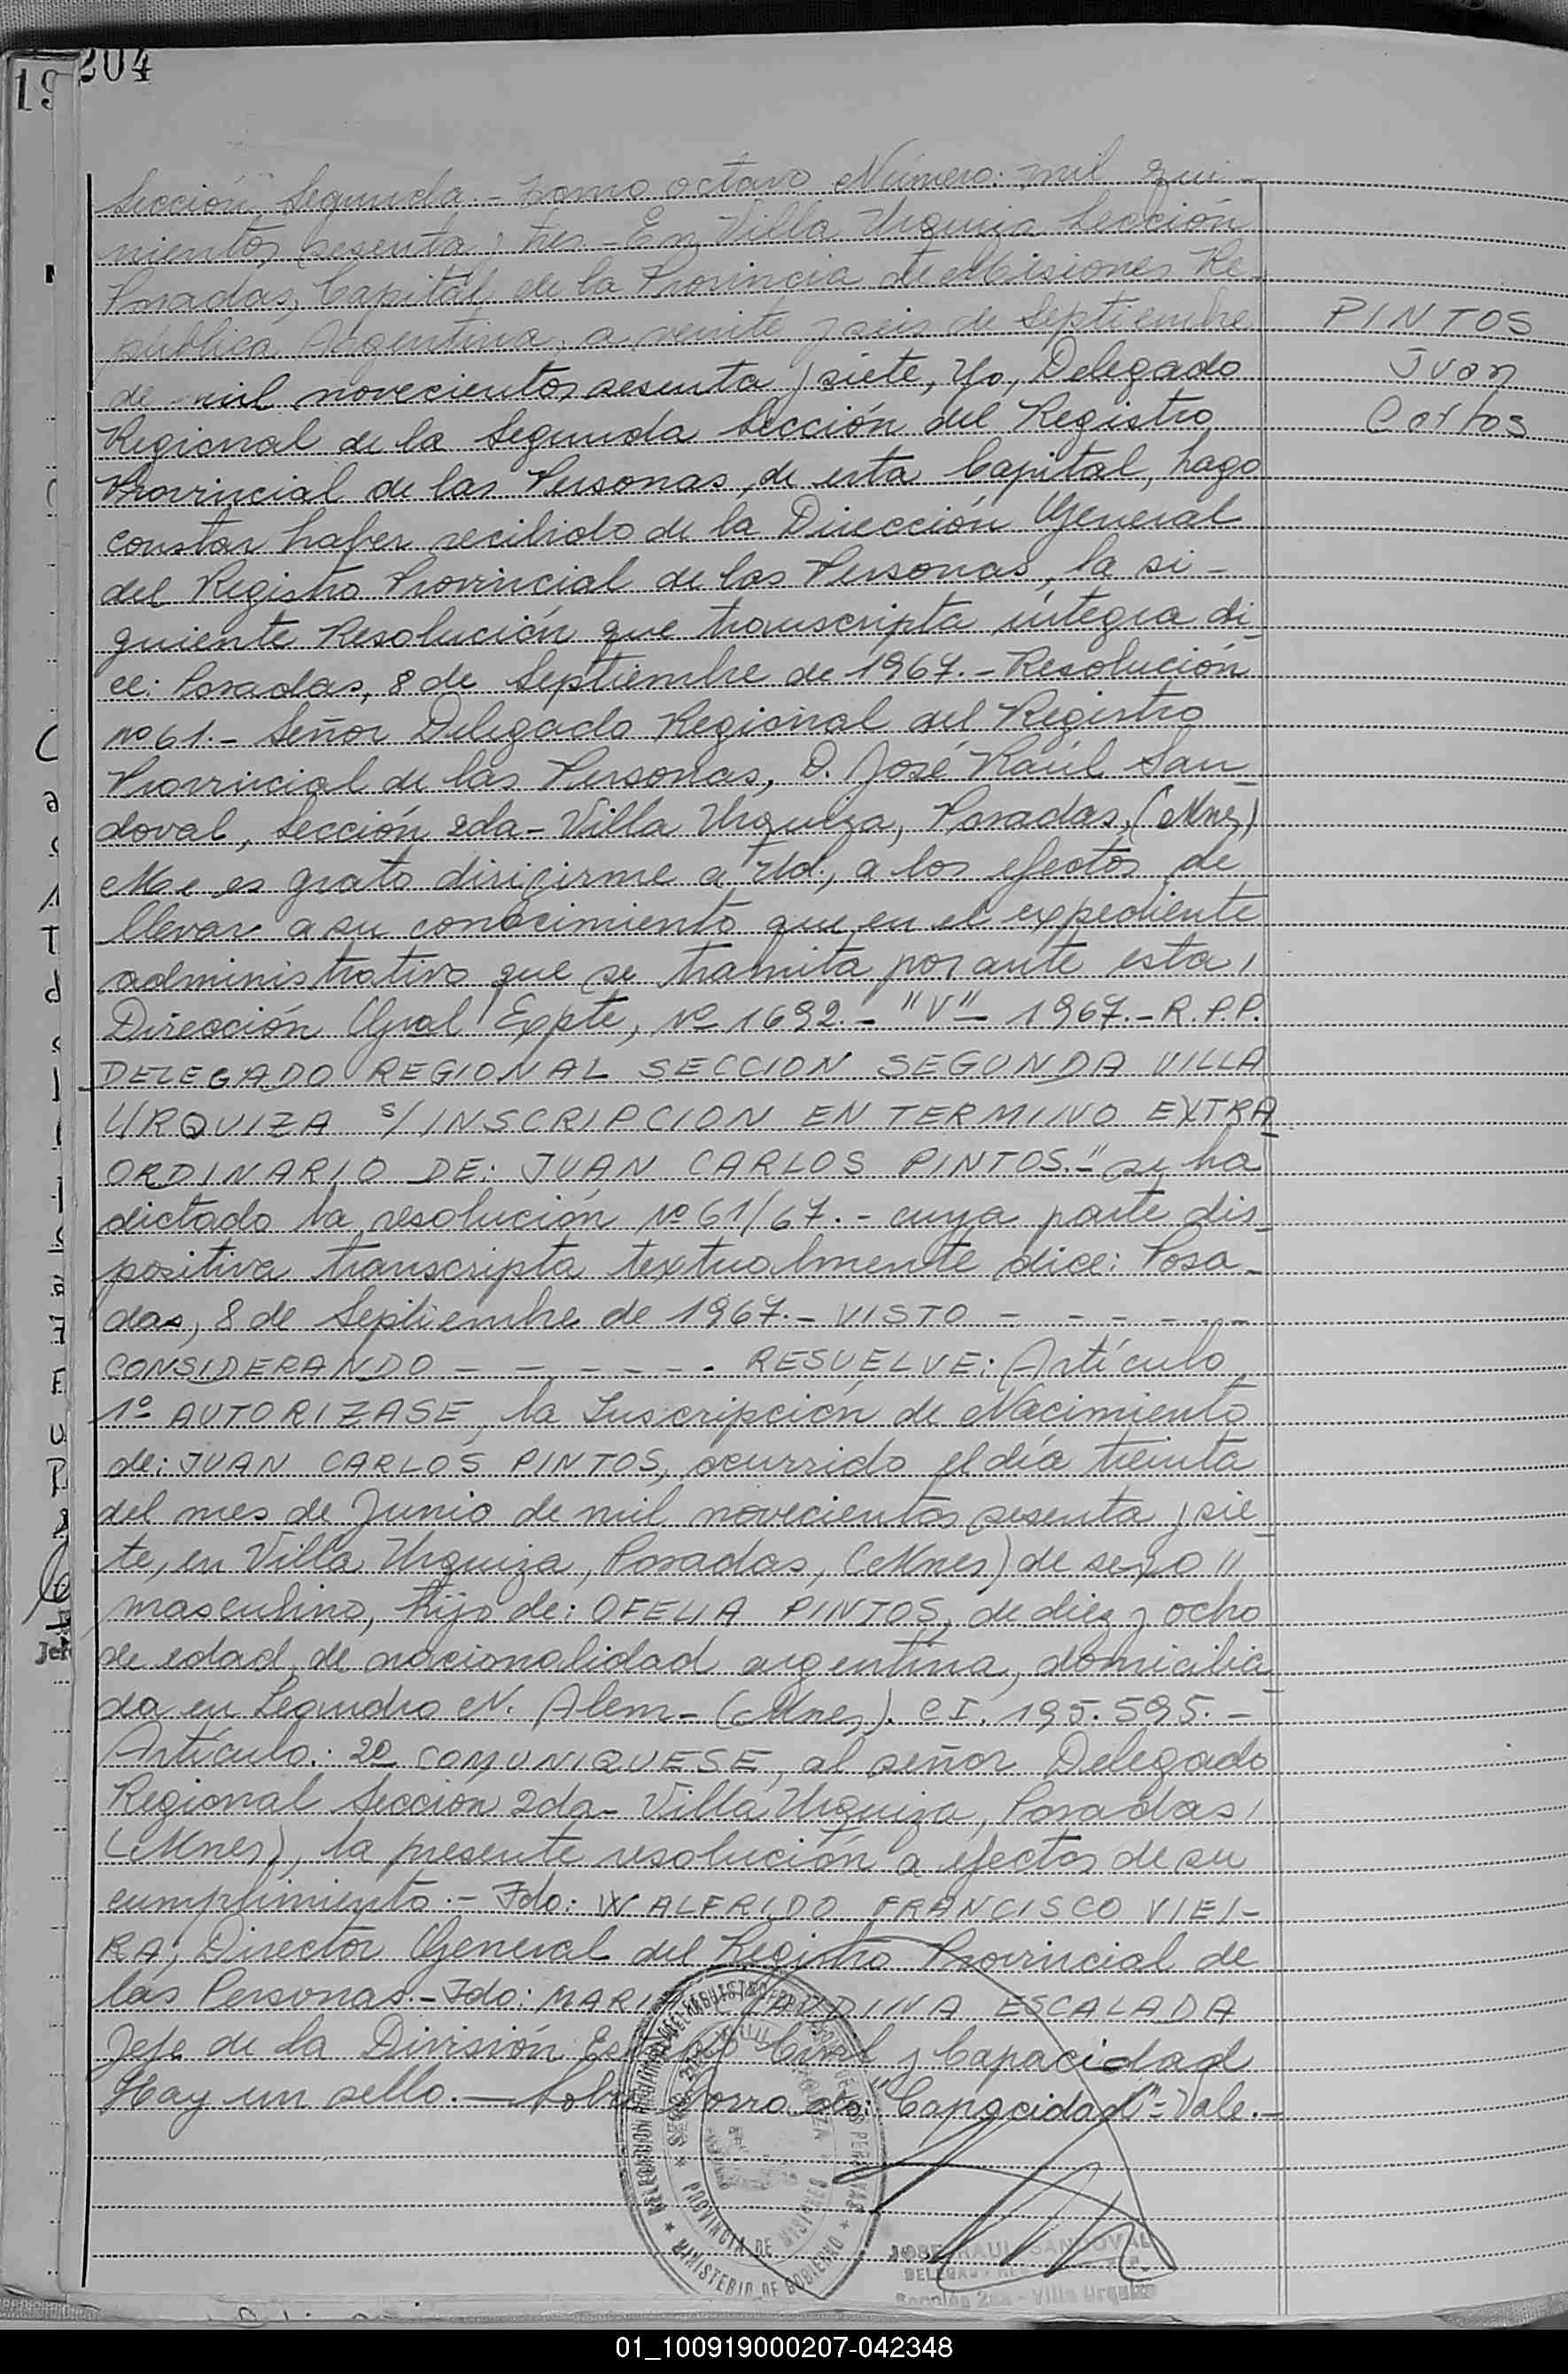 204
19
Sección Segunda.- Tomo octavo Número: mil qui-
nientos sesenta y tres - En Villa Urquiza Sección
Posadas, Capital de la Provincia de Misiones Re-
pública Argentina, a veinte y seis de Septiembre
de mil novecientos sesenta y siete, Yo, Delegado
Regional de la Segunda Sección del Registro
Provincial de las Personas, de esta Capital, hago
constar haber recibido de la Dirección General
del Registro Provincial de las Personas, la si-
guiente Resolución que transcripta íntegra di-
ce: Posadas, 8 de Septiembre de 1967.- Resolución
nº 61.- Señor Delegado Regional del Registro
Provincial de las Personas, D. José Raúl San-
doval, Sección 2da- Villa Urquiza, Posadas, (Mnes)
Me es grato dirigirme a Ud., a los efectos de
llevar a su conocimiento que en el expediente
administrativo que se tramita por ante esta,
Dirección Gral Expte, Nº 1692.- "V" - 1967.- R.P.P.
DELEGADO REGIONAL SECCION SEGUNDA VILLA
URQUIZA s/ INSCRIPCION EN TERMINO EXTRA
ORDINARIO DE: JUAN CARLOS PINTOS.-" se ha
dictado la resolución Nº 61/67.- cuya parte dis-
positiva transcripta textualmente dice: Posa-
das, 8 de Septiembre de 1967.- VISTO - - - - - -
CONSIDERANDO - - - - - - . RESUELVE: Artículo
1º AUTORIZASE, la Inscripción de Nacimiento
de: JUAN CARLOS PINTOS, ocurrido el día treinta
del mes de Junio de mil novecientos sesenta y sie-
te, en Villa Urquiza, Posadas, (Mnes) de sexo "
masculino, hijo de: OFELIA PINTOS, de diez y ocho
de edad, de nacionalidad argentina, domicilia-
da en Leandro N. Alem- (Mnes). C.I. 195.595.-
Artículo.: 2º COMUNIQUESE, al señor Delegado
Regional Sección 2da- Villa Urquiza, Posadas,
(Mnes), la presente resolución a efectos de su
cumplimiento.- Fdo: WALFRIDO FRANCISCO VIEI-
RA, Director General del Registro Provincial de
las Personas.- Fdo: ESCALADA
Jefe de la División Estado Civil y Capacidad
Hay un sello.— Sobre borrado: "Capacidad"- Vale.-
PINTOS
Juan
Carlos
PROVINCIA DE MISIONES
MINISTERIO DE GOBIERNO
JOSE RAUL SANDOVAL
Sección 2da - Villa Urquiza
01_100919000207-042348